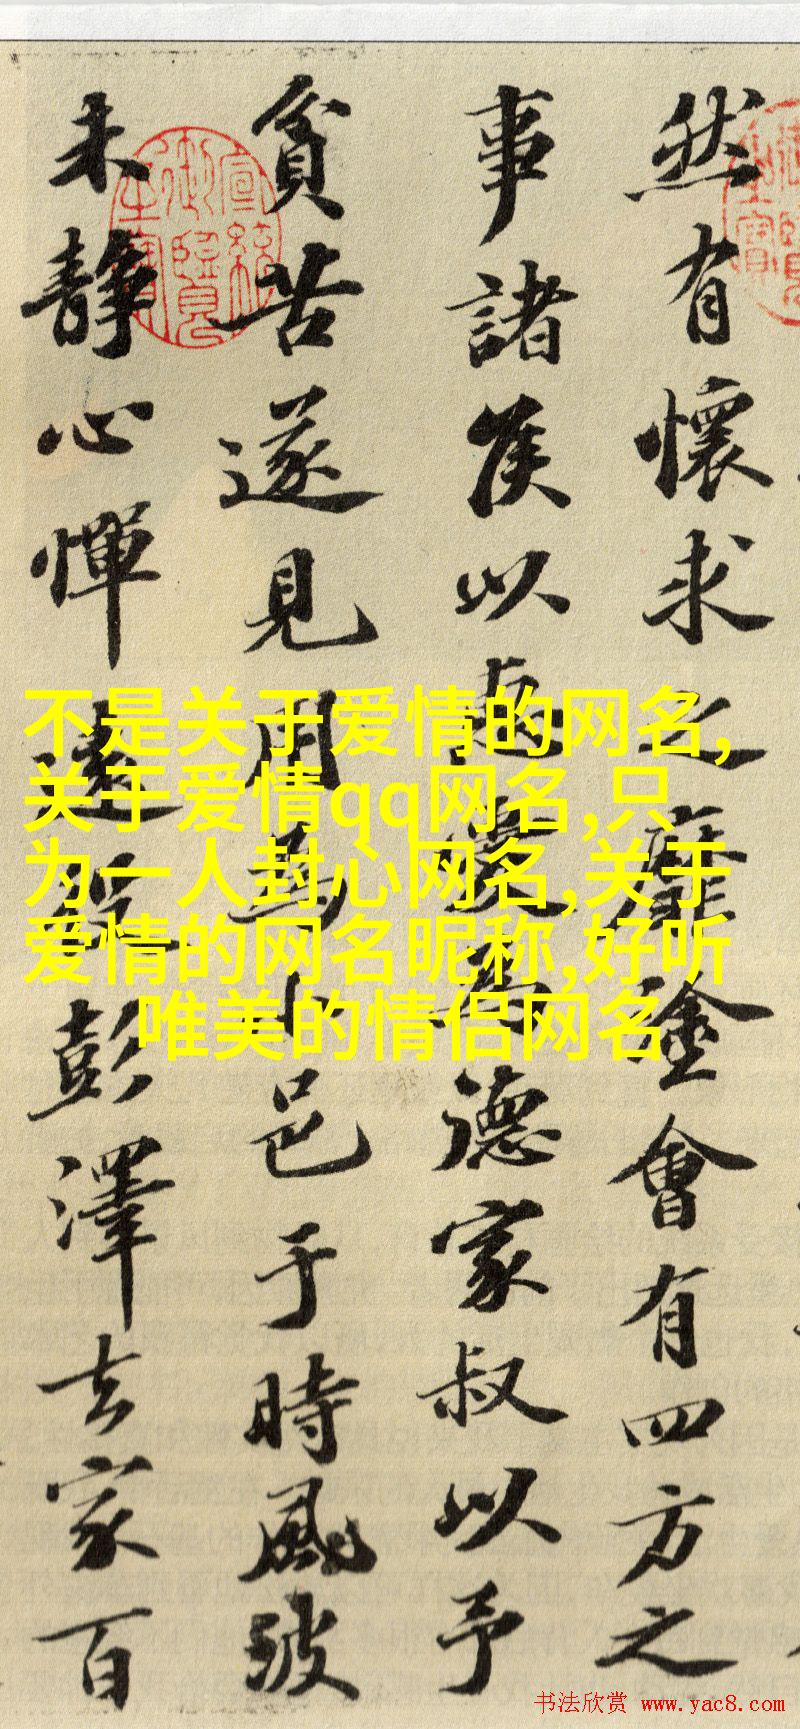 然有懷求之靡塗會有四方之
事諸侯以惠愛為德家叔以予
貧苦遂見用為小邑于時風波
未靜心憚遠役彭澤去家百
宣統
御覽
之寶
不是关于爱情的网名,
关于爱情qq网名,只
为一人封心网名,关于
爱情的网名昵称,好听
唯美的情侣网名
书法欣赏 www.yac8.com